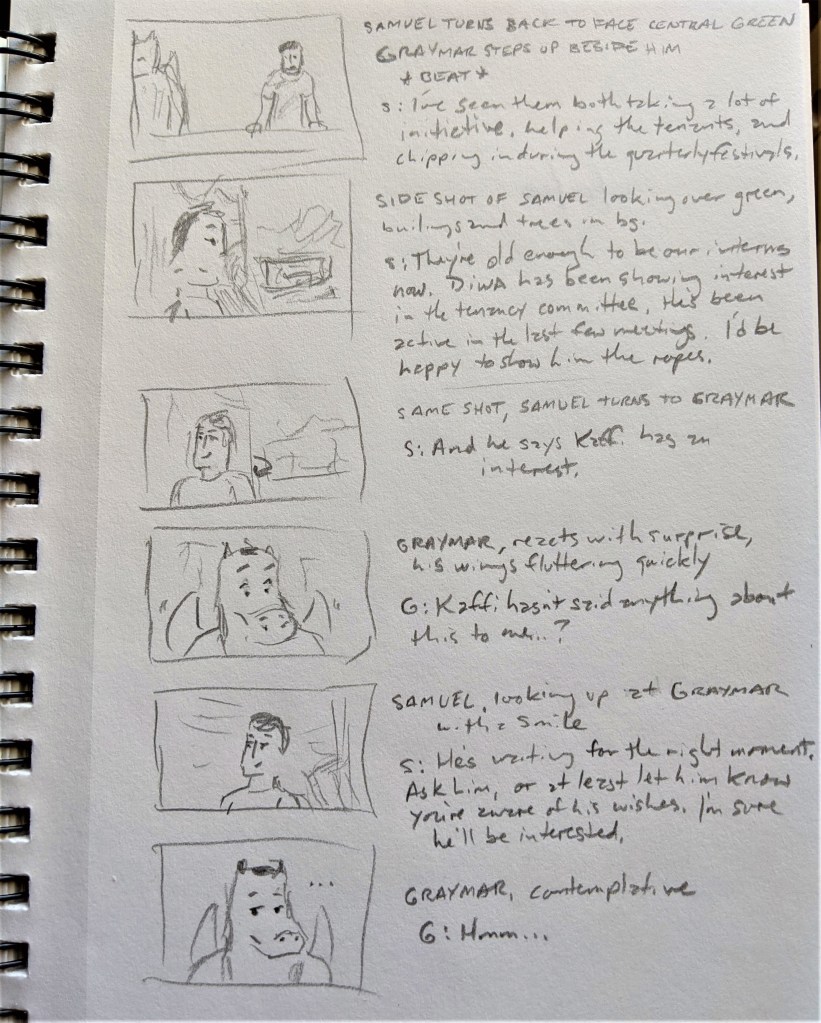 SAMUEL TURNS BACK TO FACE CENTRAL GREEN
GRAYMAR STEPS UP BESIDE HIM
* BEAT *
S: I've seen them both taking a lot of
initietive, helping the tenants, and
chipping in during the quarterly festivals.
SIDE SHOT OF SAMUEL looking over green,
builings and trees in bg.
S: They're old enough to be our interns
now. DIWA has been showing interest
in the tenancy committee, He's been
active in the last few meetings. I'd be
happy to show him the ropes.
SAME SHOT, SAMUEL TURNS TO GRAYMAR
S: And he says Kaffi has an
interest.
GRAYMAR, reacts with surprise,
his wings fluttering quickly
G: Kaffi hasn't said anything about
this to me...?
SAMUEL, looking up at GRAYMAR
with a smile
S: He's waiting for the right moment.
Ask him, or at least let him know
you're aware of his wishes. I'm sure
he'll be interested.
...
GRAYMAR, contemplative
G: Hmm...